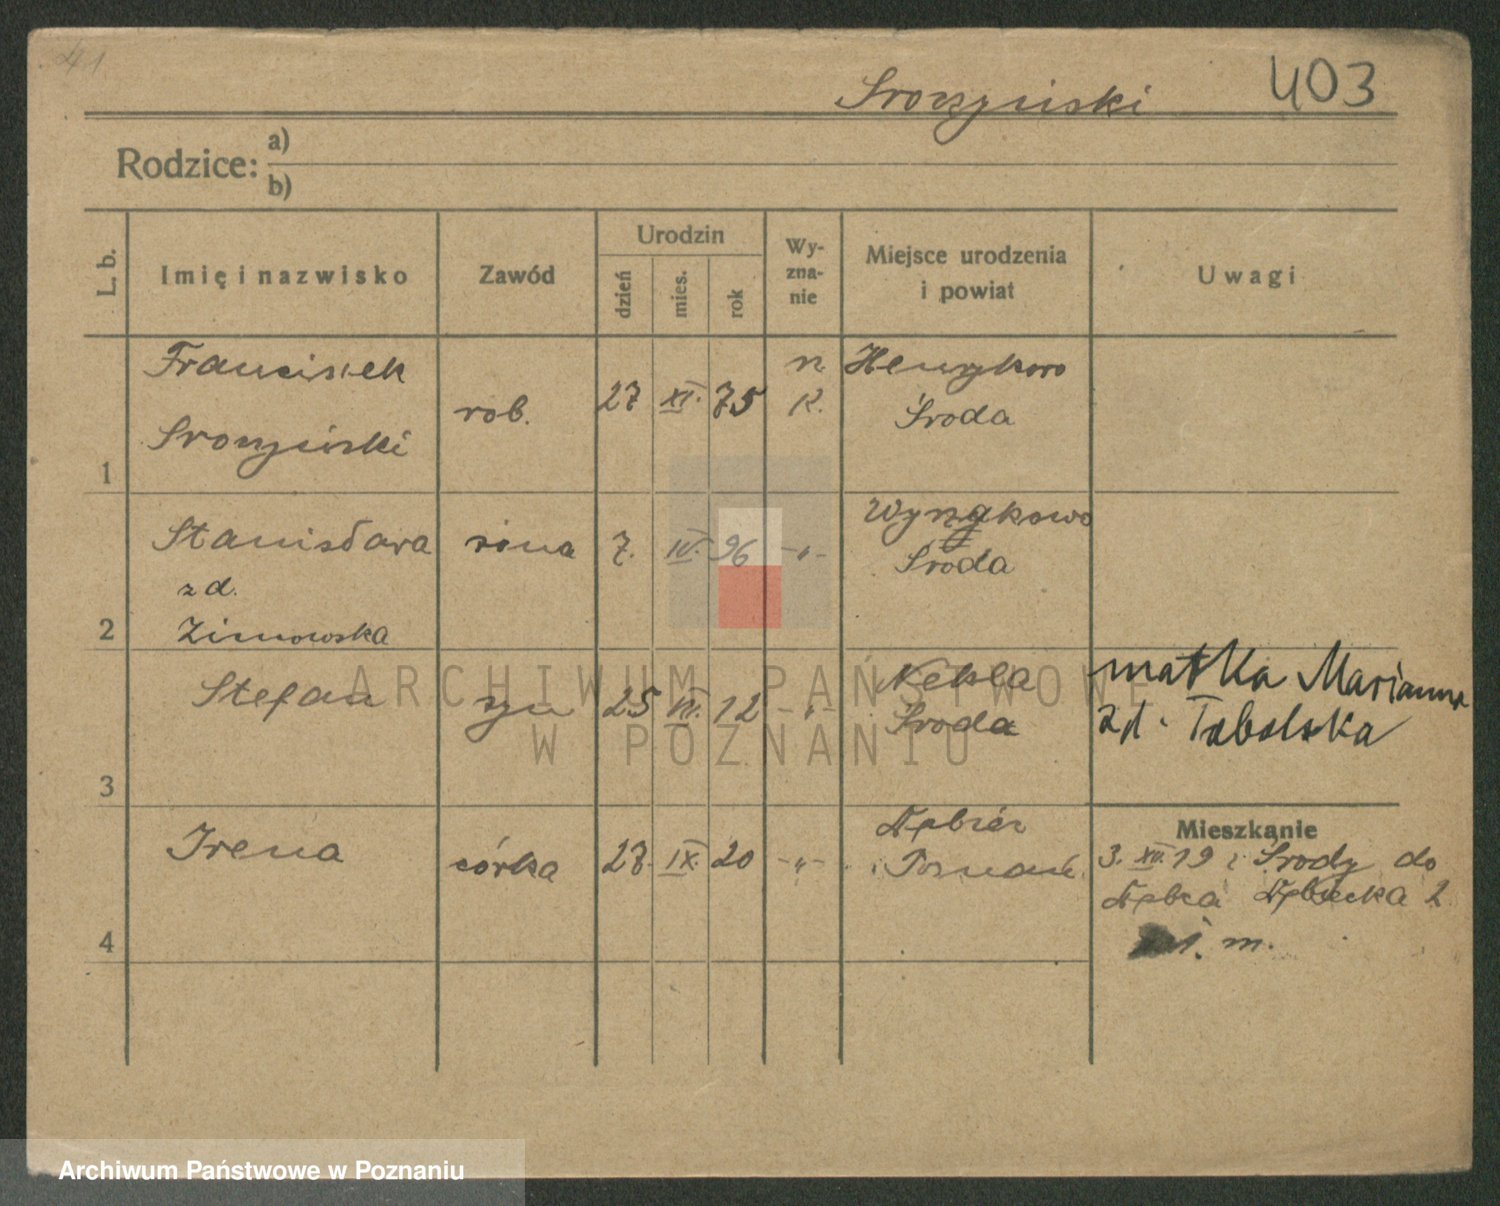 41
Sroczyński 403
Rodzice: a)
b)
L. b.
Imię i nazwisko
Zawód
Urodzin
dzień
mies.
rok
Wy-
zna-
nie
Miejsce urodzenia
i powiat
Uwagi
1
Franciszek
Sroczyński
rob.
27 XI. 75
r.
K.
Środa
2
Stanisława
z d.
Zimowska
żona
7. IV. 96 -"-
Środa
3
Stefan
syn
25 12 -"-
Nekla
Środa
matka Marianna
zd. Tobolska
4
Irena
córka
28. IX. 20 -"-
Dębiec
Poznań.
Mieszkanie
3. XII. 19 z Środy do
Dębca Dębiecka 2
1. m.
ARCHIWUM PAŃSTWOWE
W POZNANIU
Archiwum Państwowe w Poznaniu